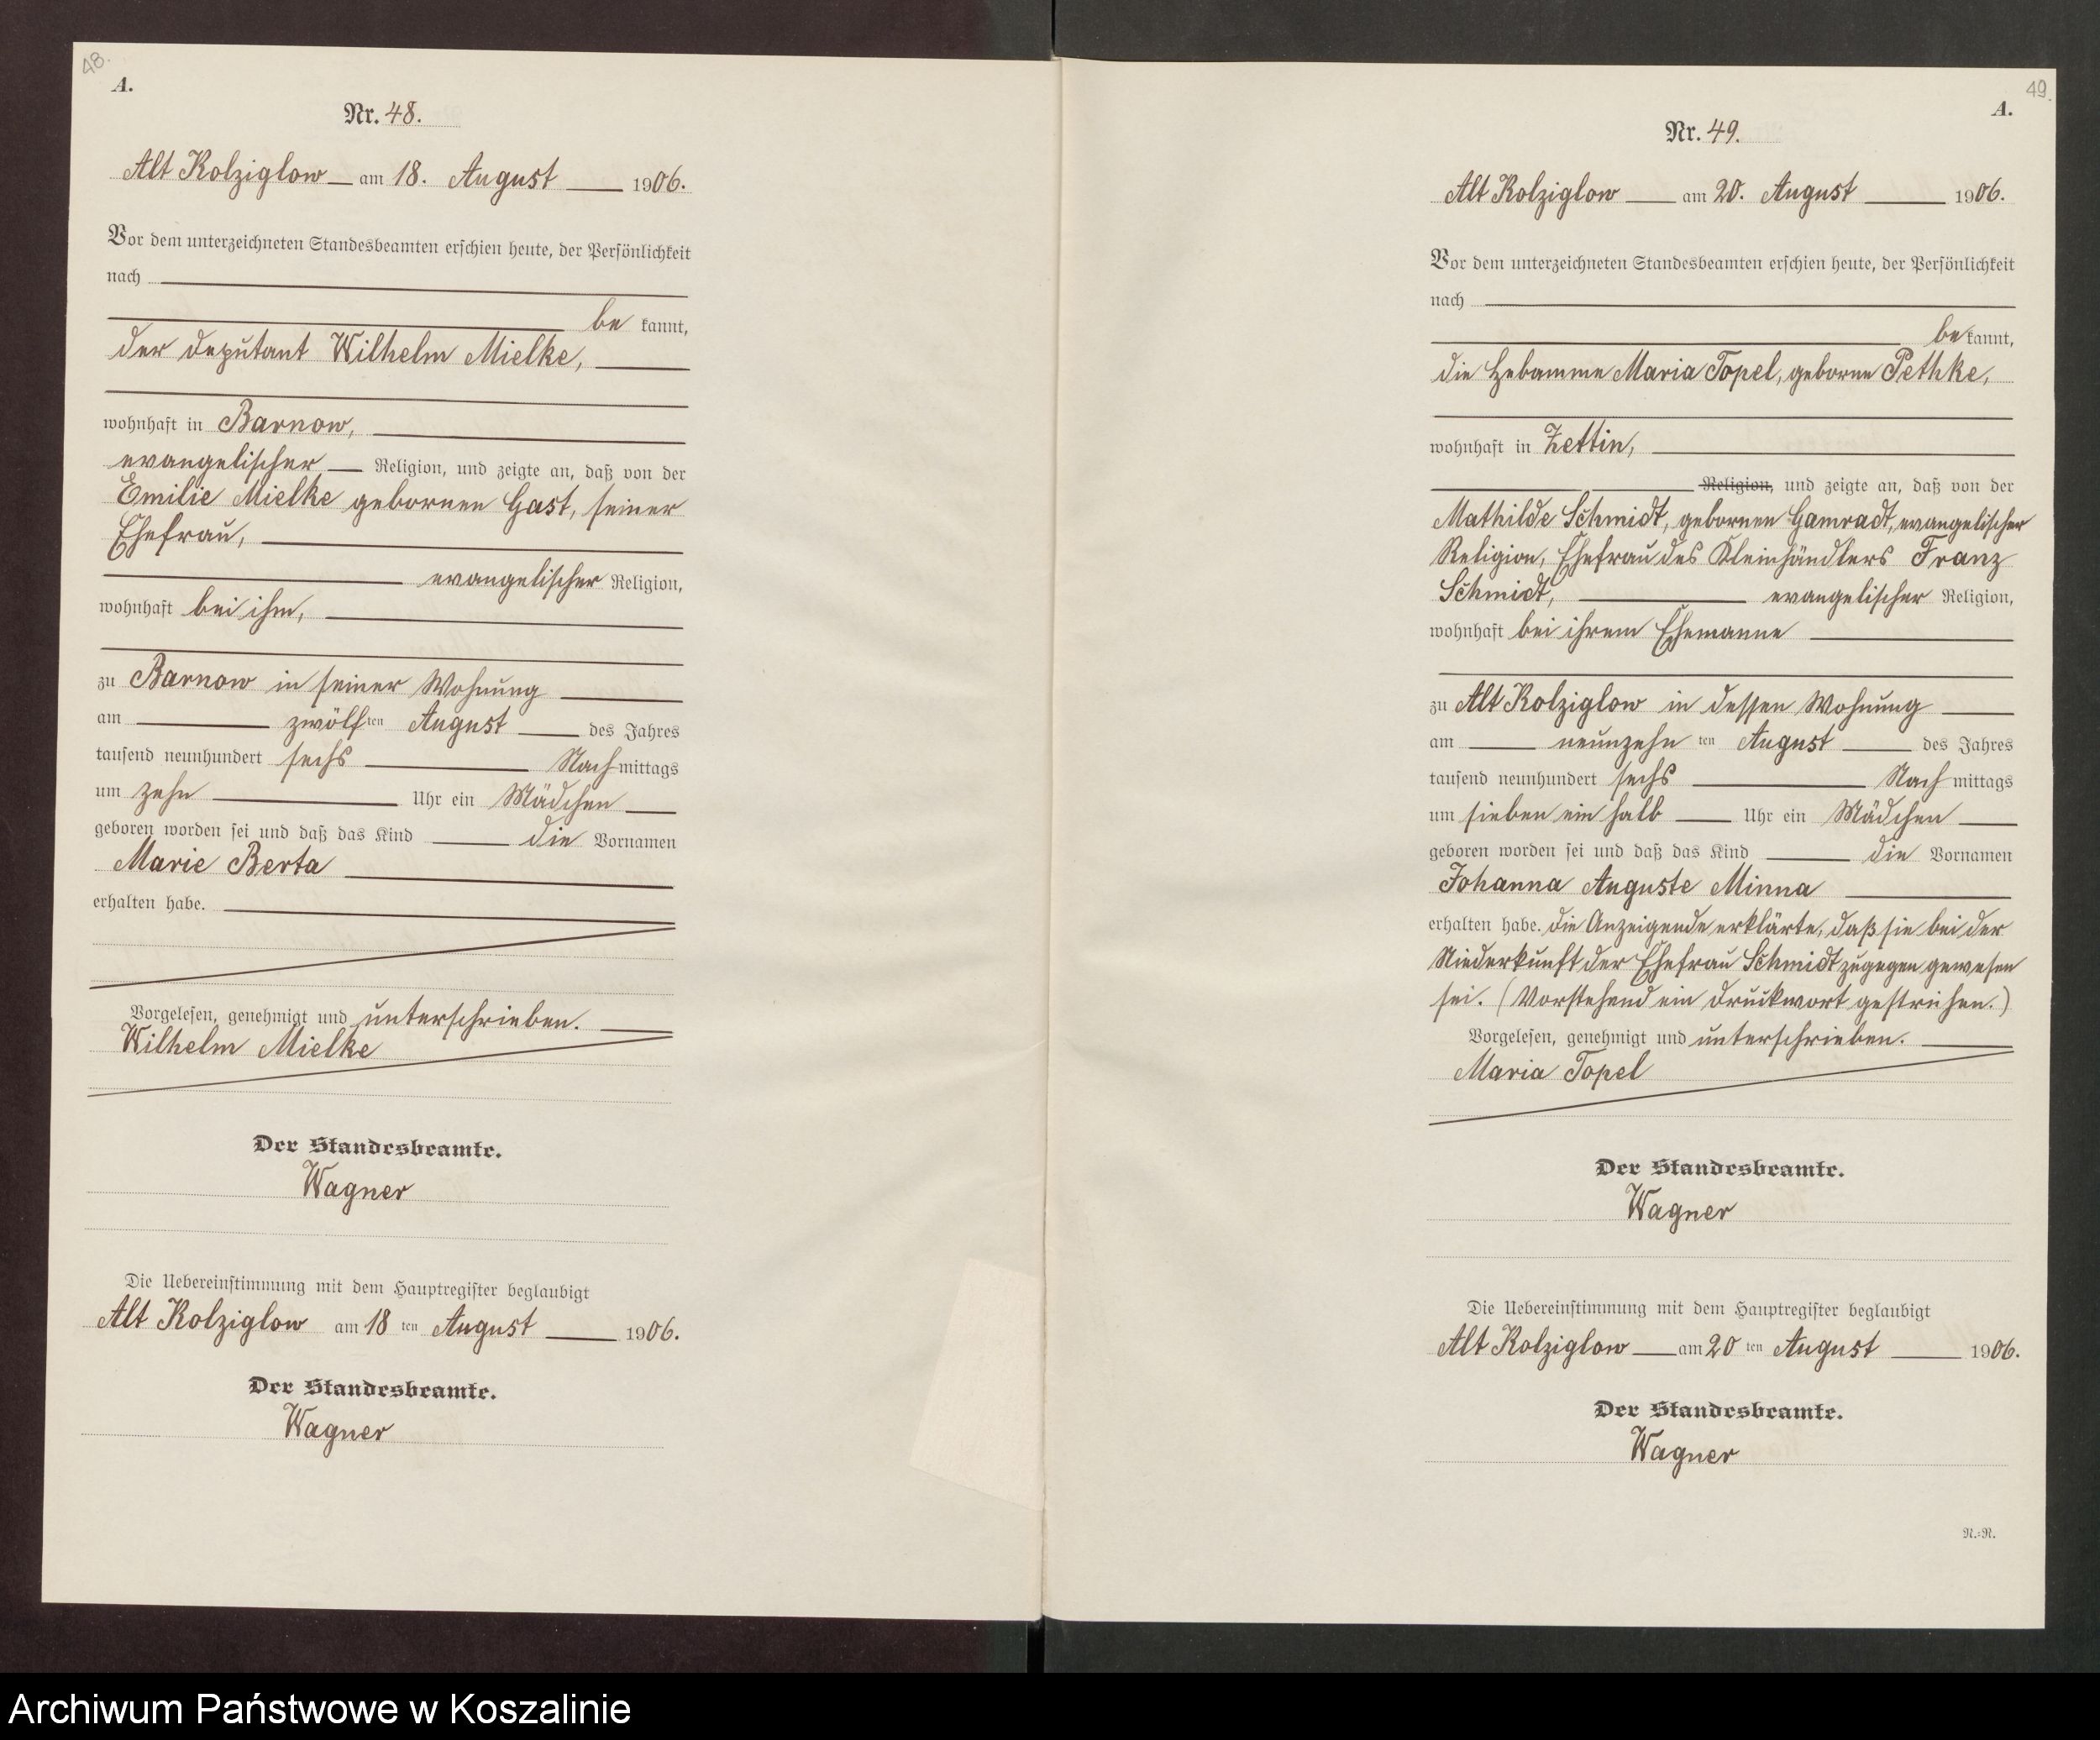 48.
A.
Nr. 48.
Alt Kolziglow am 18. August 1906.
Vor dem unterzeichneten Standesbeamten erschien heute, der Persönlichkeit
nach
be kannt,
der Deputant Wilhelm Mielke,
wohnhaft in Barnow,
evangelischer Religion, und zeigte an, daß von der
Emilie Mielke gebornen Gast, seiner
Ehefrau,
evangelischer Religion,
wohnhaft bei ihm,
zu Barnow in seiner Wohnung
am zwölf ten August des Jahres
tausend neunhundert sechs Nachmittags
um zehn Uhr ein Mädchen
geboren worden sei und daß das Kind die Vornamen
Marie Berta
erhalten habe.
Vorgelesen, genehmigt und unterschrieben.
Wilhelm Mielke
Der Standesbeamte.
Wagner
Die Uebereinstimmung mit dem Hauptregister beglaubigt
Alt Kolziglow am 18 ten August 1906.
Der Standesbeamte.
Wagner
49.
A.
Nr. 49.
Alt Kolziglow am 20. August 1906.
Vor dem unterzeichneten Standesbeamten erschien heute, der Persönlichkeit
nach
be kannt,
die Hebamme Maria Topel, geborne Pethke,
wohnhaft in Zettin,
Religion, und zeigte an, daß von der
Mathilde Schmidt, gebornen Gamradt, evangelischer
Religion, Ehefrau des Kleinhändlers Franz
Schmidt, evangelischer Religion,
wohnhaft bei ihrem Ehemanne
zu Alt Kolziglow in dessen Wohnung
am neunzehn ten August des Jahres
tausend neunhundert sechs Nach mittags
um sieben ein halb Uhr ein Mädchen
geboren worden sei und daß das Kind die Vornamen
Johanna Auguste Minna
erhalten habe. Die Anzeigende erklärte, daß sie bei der
Niederkunft der Ehefrau Schmidt zugegen gewesen
sei. (Vorstehend ein Druckwort gestrichen.)
Vorgelesen, genehmigt und unterschrieben.
Maria Topel
Der Standesbeamte.
Wagner
Die Uebereinstimmung mit dem Hauptregister beglaubigt
Alt Kolziglow am 20 ten August 1906.
Der Standesbeamte.
Wagner
N.=N.
Archiwum Państwowe w Koszalinie